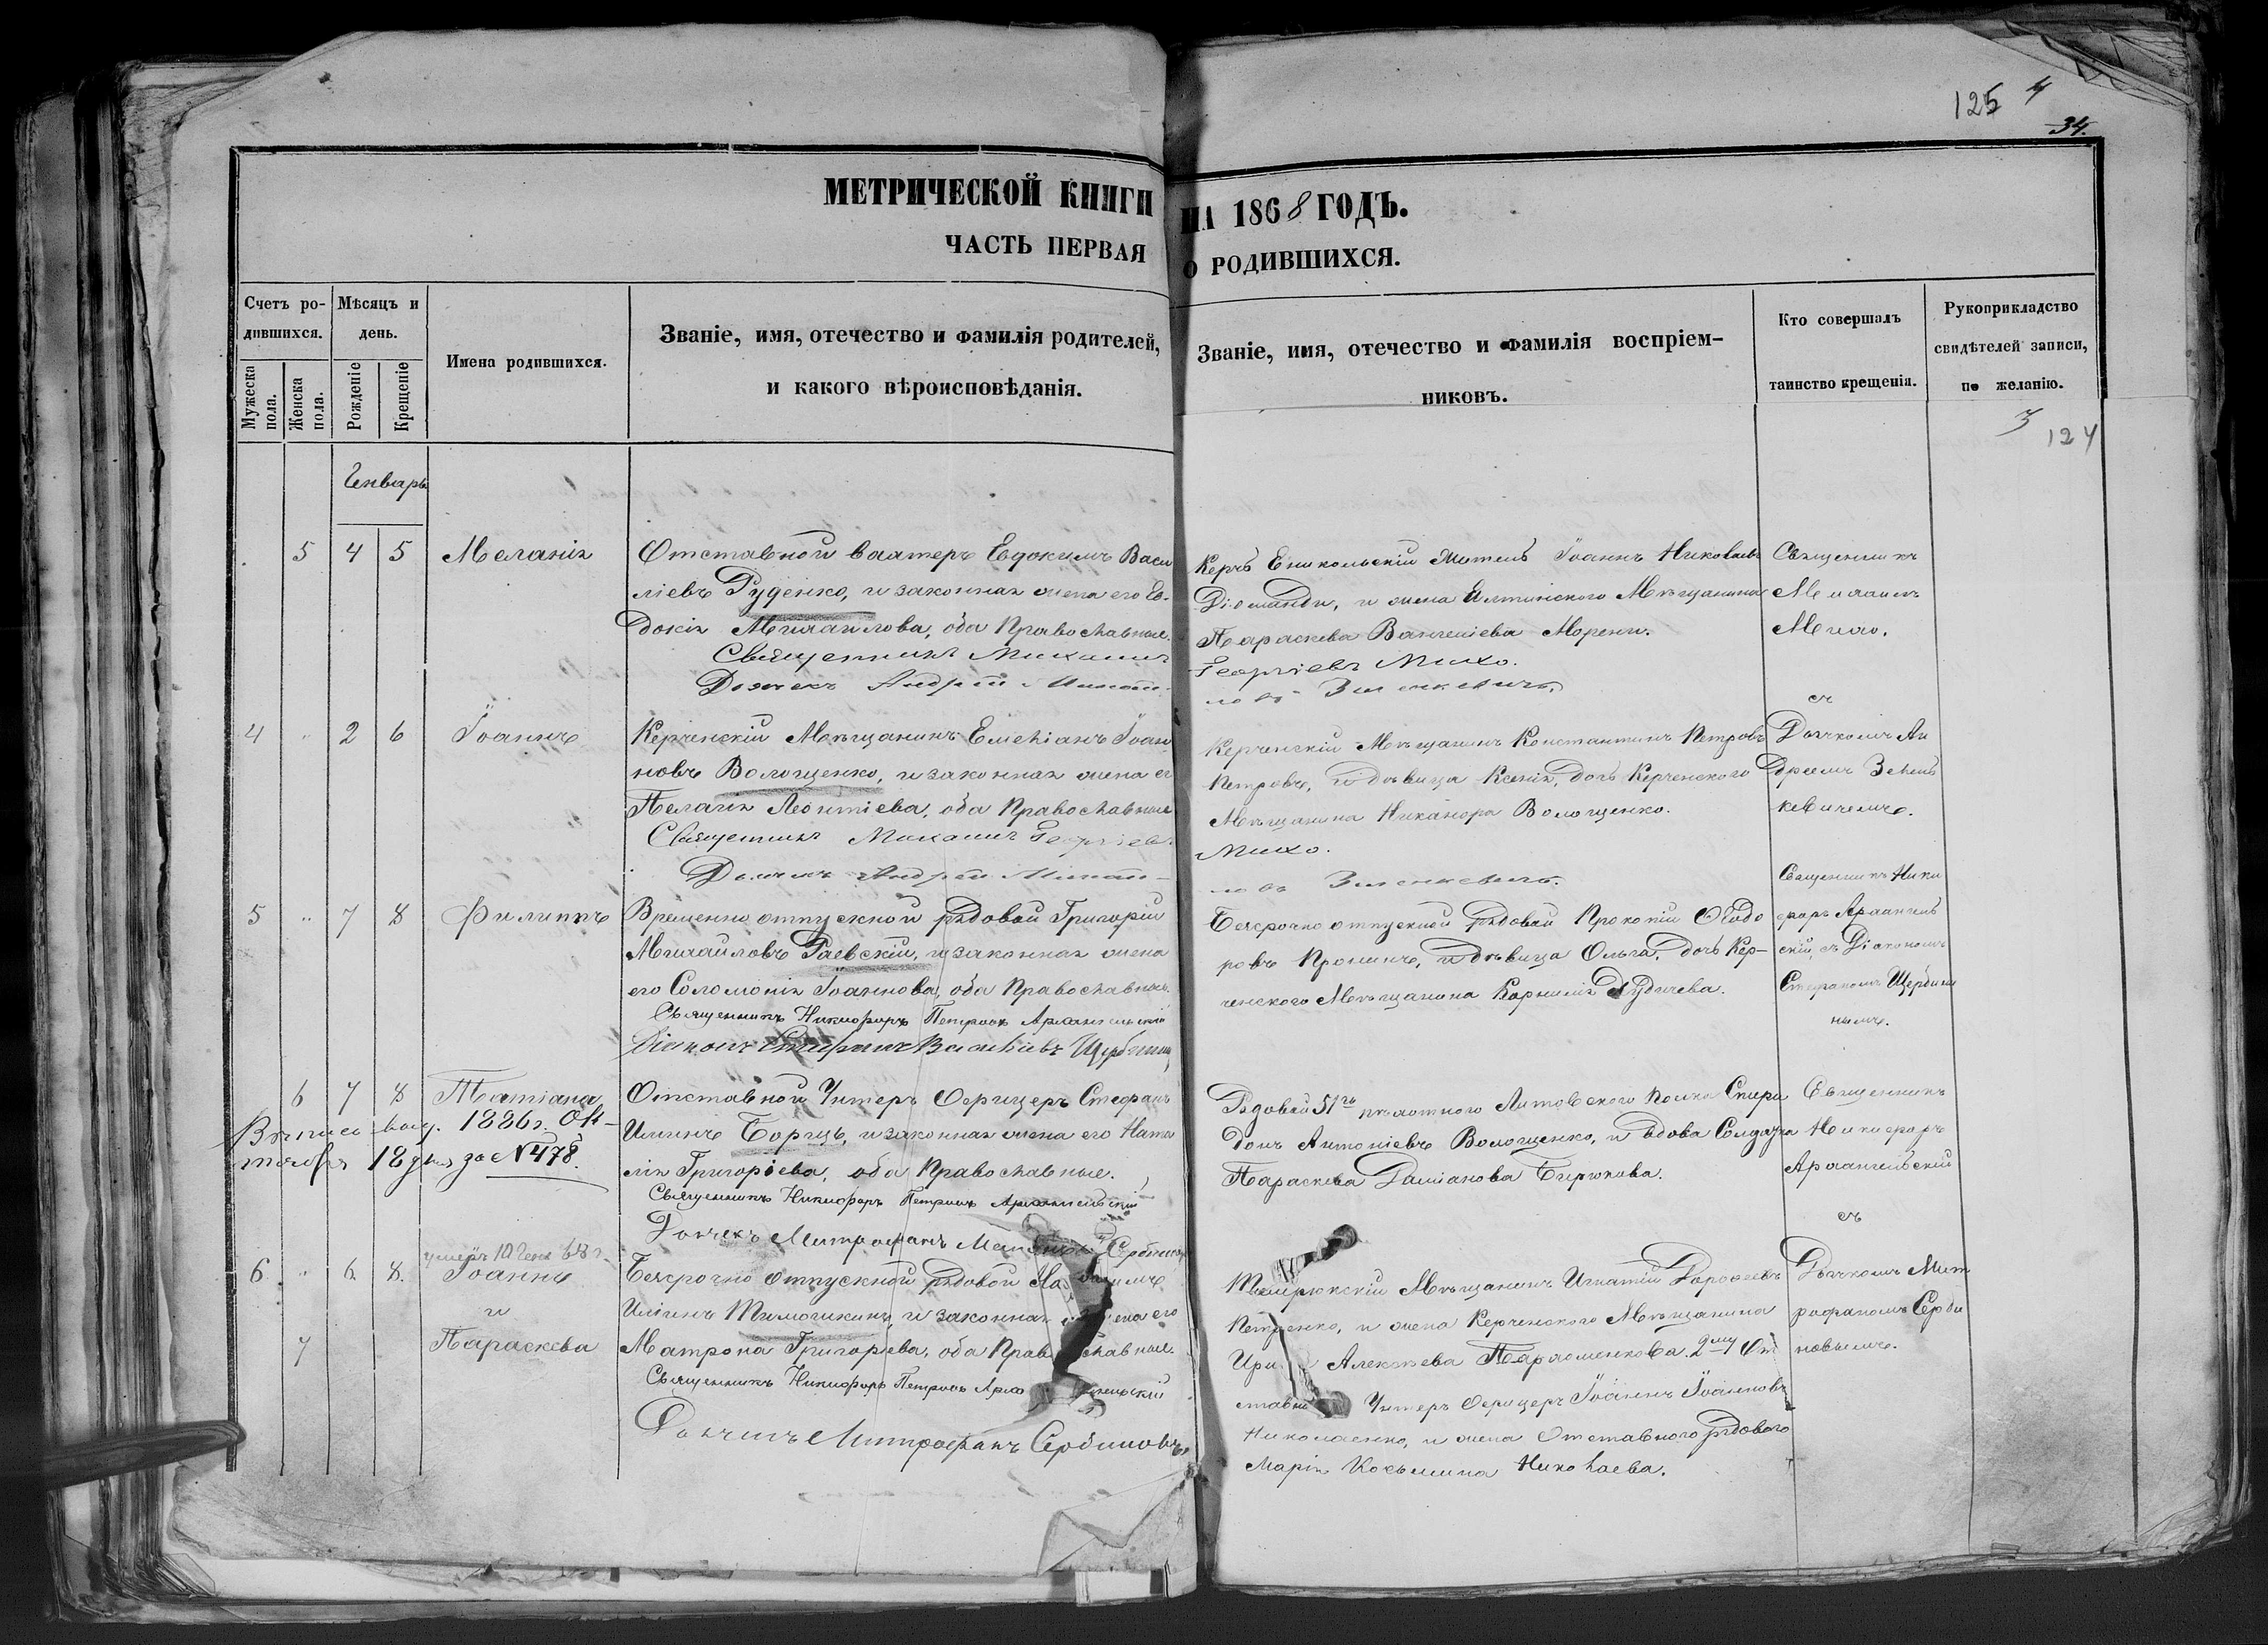 125 4
34.
МЕТРИЧЕСКОЙ КНИГИ НА 1868 ГОДЪ.
ЧАСТЬ ПЕРВАЯ О РОДИВШИХСЯ.
Счетъ ро-
дившихся.
Мужеска пола.
Женска пола.
Мѣсяцъ и
день.
Рожденіе
Крещеніе
Имена родившихся.
Званіе, имя, отечество и фамилія родителей,
и какого вѣроисповѣданія.
Званіе, имя, отечество и фамилія воспріем-
никовъ.
Кто совершалъ
таинство крещенія.
Рукоприкладство
свидѣтелей записи,
по желанію.
3 124
Генварь
5 4 5 Меланія
Отставной вахтеръ Евдокимъ Васи
ліевъ Руденко, и законная жена его Ев-
докія Михаилова, оба Православные.
Священникъ Михаилъ Георгіевъ Михо.
Дьячекъ Андрей Михаи-
ловъ Зиленкевичъ.
Керчь Еникольскій житель Іоаннъ Николаевъ
Діоманди, и жена Ялтинскаго Мѣщанина
Параскева
Священникъ
Михаилъ
Михо.
съ
Дьячкомъ Ан
дреемъ Зелен
кевичемъ.
4 " 2 6 Іоаннъ
Керченскій Мѣщанинъ Емеліанъ Іоан
новъ Волощенко, и законная жена ег
Пелагія Леонтіева, оба Православные
Священникъ Михаилъ Георгіевъ Михо.
Дьячекъ Андрей Михаи-
ловъ Зиленкевичъ.
Керченскій Мѣщанинъ Константинъ Петровъ
Петровъ, и дѣвица Ксенія, дочь Керченского
Мѣщанина Никанора Волощенко.
5 " 7 8 Филиппъ
Временно отпускной рядовой Григорій
Михаиловъ Раевскій, и законная жена
его Соломонія Іоаннова, оба Православные.
Священникъ Никифоръ Петровъ Архангельскій
Діаконъ Стефанъ Щербин
Безсрочно отпускной рядовой Прокопій Ѳеодо
ровъ Пронинъ, и дѣвица Ольга, дочь Кер-
ченского Мѣщанина Корнилія
Священникъ Ники
форъ Архангель
скій, съ Діакономъ
Стефаномъ Щербини
нымъ.
6 7 8 Татіана
Выпись выд. 1886 г. Ок-
тября 18 дня за № 478.
Отставной Унтеръ Офицеръ Стефанъ
Илиинъ Борецъ, и законная жена его Ната
лія Григоріева, оба Православные.
Священникъ Никифоръ Петровъ Архангельскій
Дьячекъ Митрофанъ Сербиновъ
Рядовой 51го пѣхотного Литовского полка Спири
донъ Антоніевъ Волощенко, и вдова Солдатка
Параскева Даміанова Бирюкова.
Священникъ
Никифоръ
Архангельскій
съ
Дьячкомъ Мит
рофаномъ Серби
новымъ.
умеръ 10 Генв 68 г.
6 " 6 8 Іоаннъ
и
7 Параскева
Безсрочно отпускной рядовой
Иліинъ Тимошкинъ, и законная жена его
Матрона Григорьева, оба Православные.
Священникъ Никифоръ Петровъ Архангельскій
Дьячекъ Митрофанъ Сербиновъ
Темрюкскій Мѣщанинъ Игнатій Дороѳеевъ
Петренко, и жена Керченского Мѣщанина
Алексѣева Пархоменкова. 2му От
ставной Унтеръ Офицеръ Іоаннъ Іоанновъ
Николаенко, и жена Отставного рядового
Марія Косьмина Николаева.